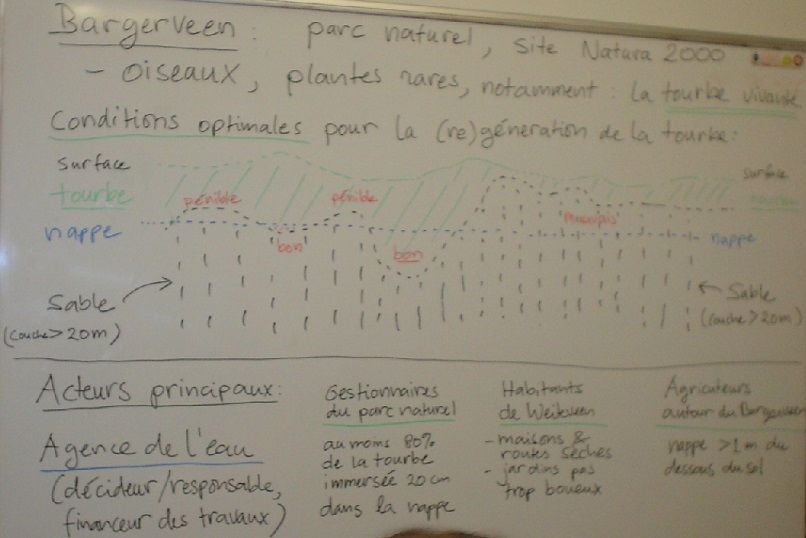 Bargerveen : parc naturel, site Natura 2000
- oiseaux, plantes rares, notamment : la tourbe vivante
Conditions optimales pour la (re)génération de la tourbe:
surface
surface
tourbe
pénible
pénible
nappe
'bon'
bon
nappe
Sable
(couche > 20m)
Sable
(couche > 20m)
Acteurs principaux:
Agence de l'eau
(décideur/responsable,
financeur des travaux)
Gestionnaires
du parc naturel
au moins 80%
de la tourbe
immersée 20 cm
dans la nappe
Habitants
de Weiteveen
- maisons &
routes sèches
- jardins pas
trop boueux
Agriculteurs
autour du Bargerveen
nappe > 1m du
dessous du sol